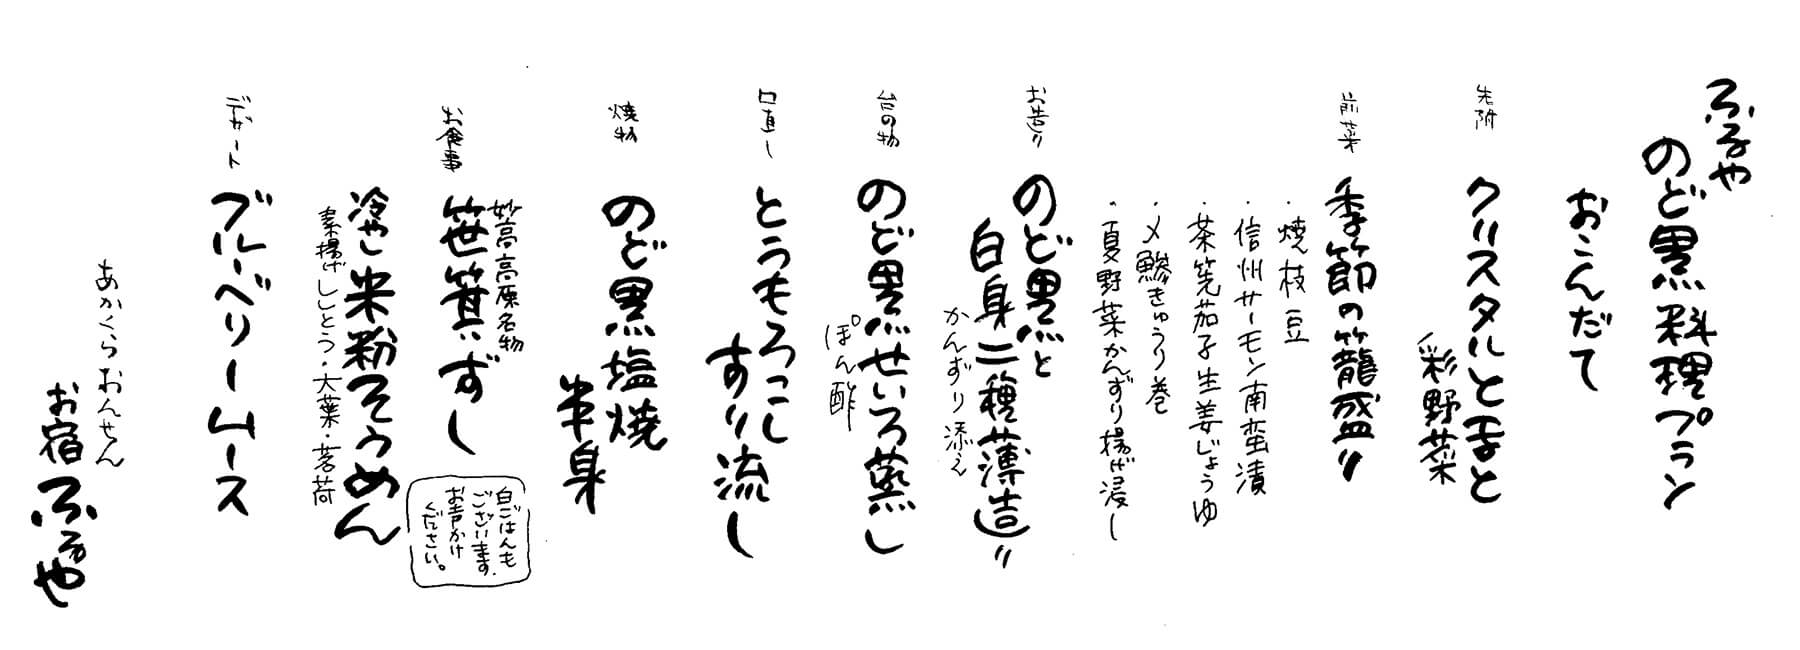 ふるや
のど黒料理プラン
おこんだて
先附
クリスタルと雲と
彩野菜
前菜
季節の籠盛り
・焼枝豆
・信州サーモン南蛮漬
・茶筅茄子生姜じょうゆ
・〆鯵きゅうり巻
・夏野菜かんずり揚げ浸し
お造り
のど黒と
白身二種薄造り
かんずり添え
台の物
のど黒せいろ蒸し
ぽん酢
口直し
とうもろこし
すり流し
焼物
のど黒塩焼
半身
お食事
妙高高原名物
笹箕ずし
白ごはんも
ございます。
お声かけ
ください。
冷やし米粉そうめん
素揚げししとう・大葉・茗荷
デザート
ブルーベリームース
あかくらおんせん
お宿ふるや